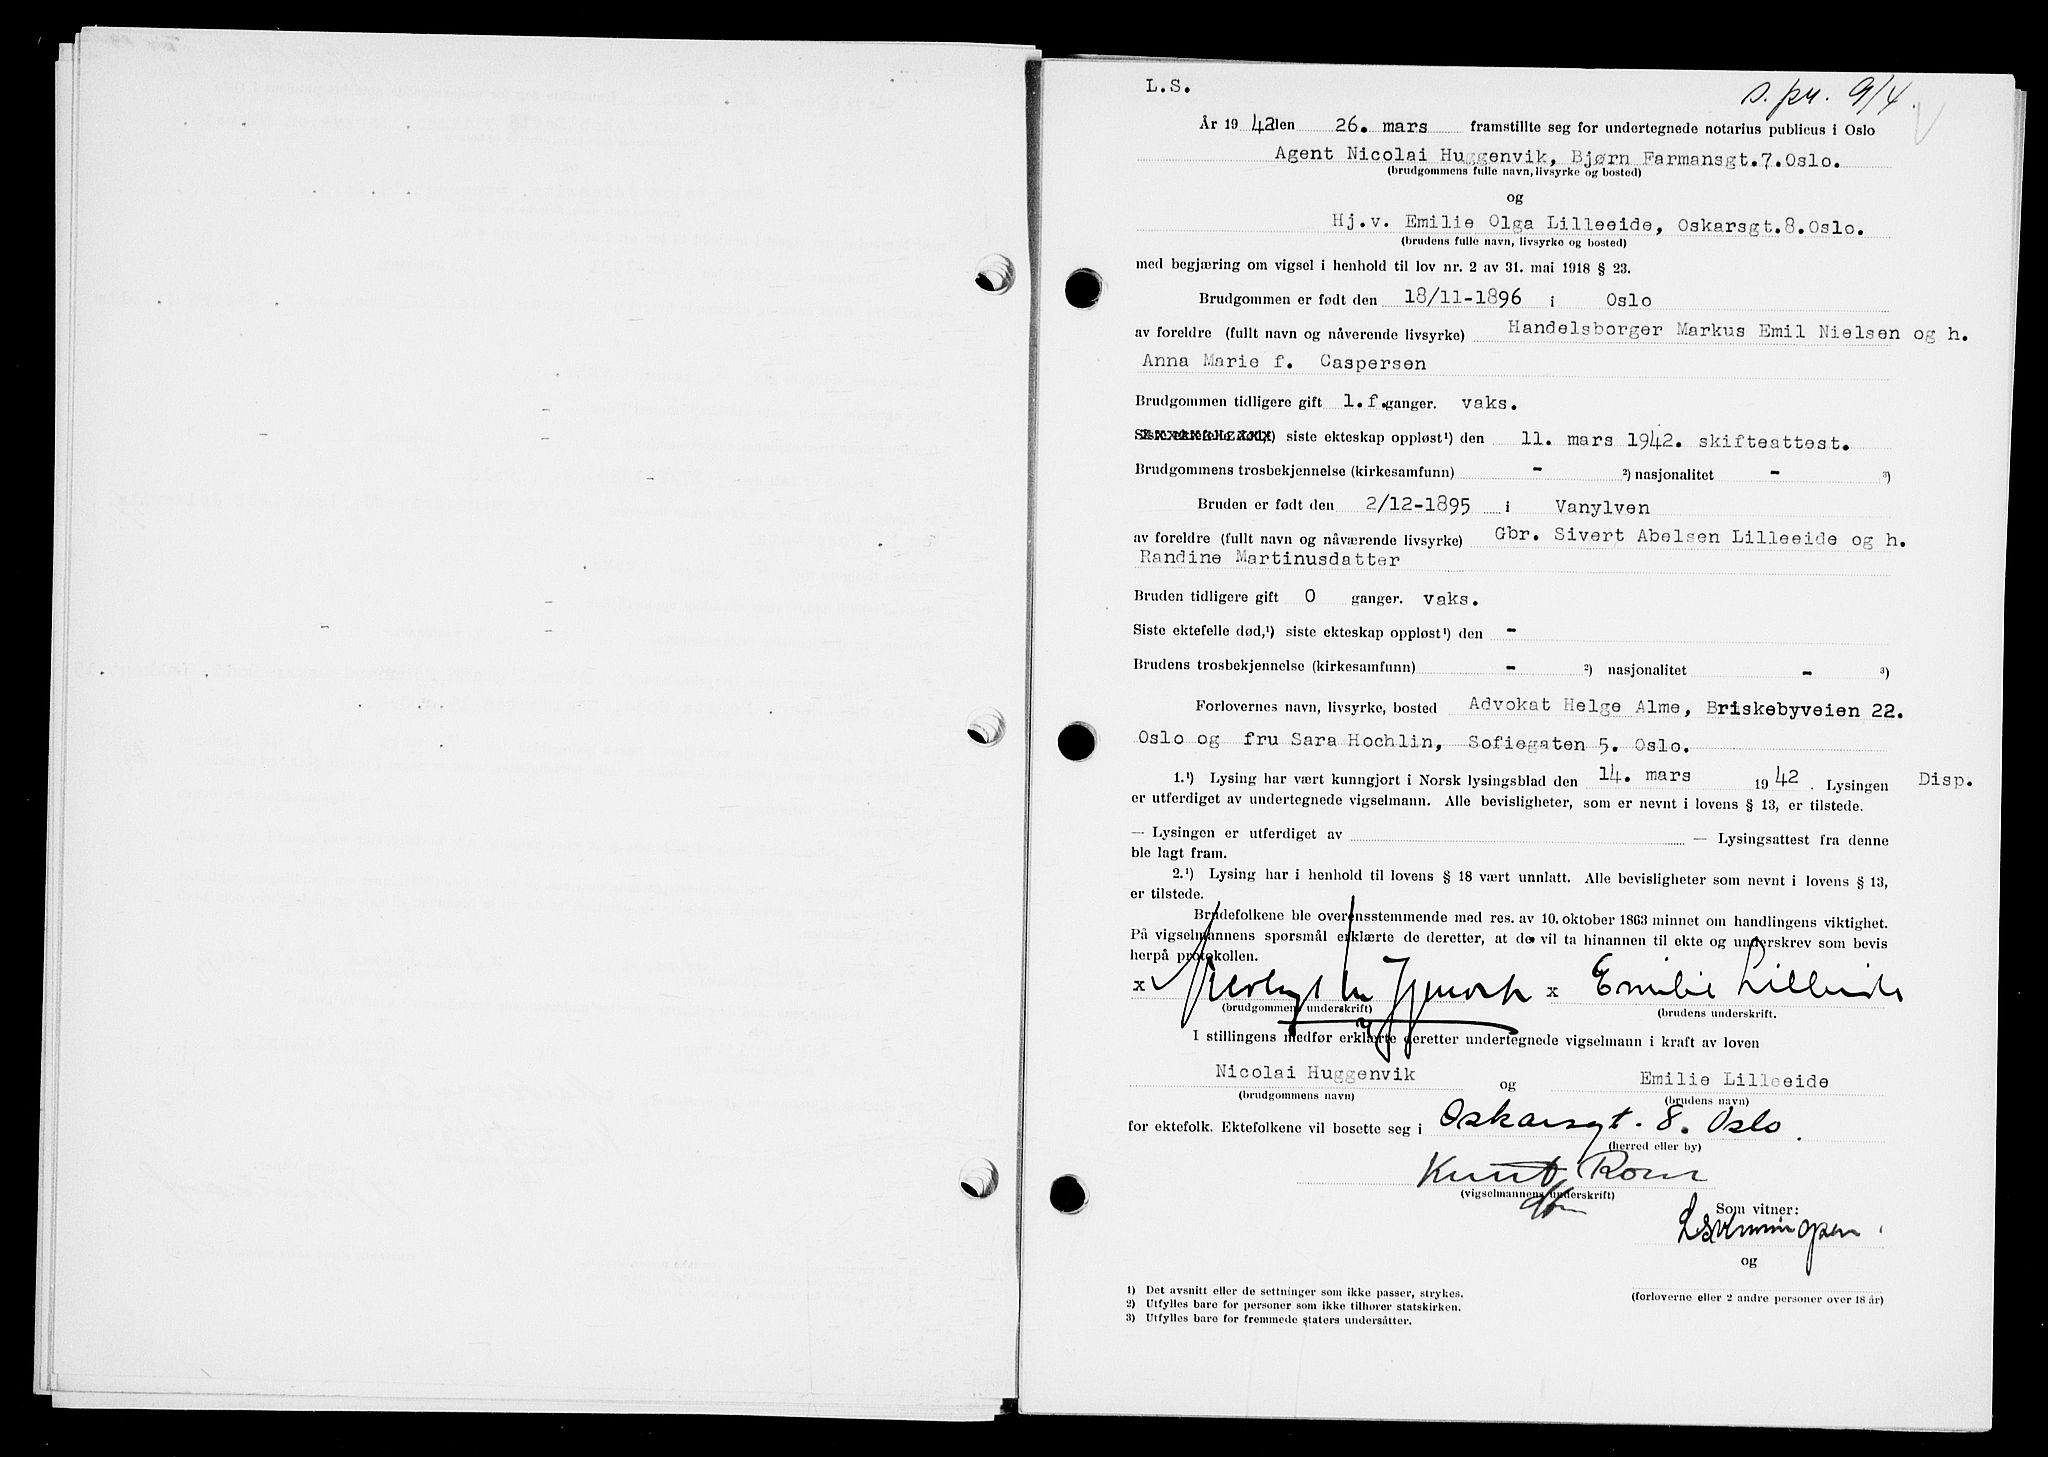 L.S.
s. pr. 9/4.
År 19 42 den 26. mars framstillte seg for undertegnede notarius publicus i Oslo
Agent Nicolai Huggenvik, Bjørn Farmansgt.7.Oslo.
(brudgommens fulle navn, livsyrke og bosted)
og
Hj.v. Emilie Olga Lilleeide, Oskarsgt.8.Oslo.
(brudens fulle navn, livsyrke og bosted)
med begjæring om vigsel i henhold til lov nr. 2 av 31. mai 1918 § 23.
Brudgommen er født den 18/11-1896 i Oslo
av foreldre (fullt navn og nåverende livsyrke) Handelsborger Markus Emil Nielsen og h.
Anna Marie f. Caspersen
Brudgommen tidligere gift 1.f.ganger. vaks.
siste ekteskap oppløst¹) den 11. mars 1942. skifteattest.
Brudgommens trosbekjennelse (kirkesamfunn) - ²) nasjonalitet - ³)
Bruden er født den 2/12-1895 i Vanylven
av foreldre (fullt navn og nåværende livsyrke) Gbr. Sivert Abelsen Lilleeide og h.
Randine Martinusdatter
Bruden tidligere gift 0 ganger. vaks.
Siste ektefelle død,¹) siste ekteskap oppløst¹) den -
Brudens trosbekjennelse (kirkesamfunn) - ²) nasjonalitet - ³)
Forlovernes navn, livsyrke, bosted Advokat Helge Alme, Briskebyveien 22.
Oslo og fru Sara Hochlin, Sofiegaten 5. Oslo.
1.¹) Lysing har vært kunngjort i Norsk lysingsblad den 14. mars 1942. Lysingen Disp.
er utferdiget av undertegnede vigselmann. Alle bevisligheter, som er nevnt i lovens § 13, er tilstede.
— Lysingen er utferdiget av — Lysingsattest fra denne
ble lagt fram.
2.¹) Lysing har i henhold til lovens § 18 vært unnlatt. Alle bevisligheter som nevnt i lovens § 13,
er tilstede.
Brudefolkene ble overensstemmende med res. av 10. oktober 1863 minnet om handlingens viktighet.
På vigselmannens spørsmål erklærte de deretter, at de vil ta hinannen til ekte og underskrev som bevis
herpå protokollen.
x x Emilie Lilleeide
(brudgommens underskrift) (brudens underskrift.
I stillingens medfør erklærte deretter undertegnede vigselmann i kraft av loven
Nicolai Huggenvik og Emilie Lilleeide
(brudgommens navn) (brudens navn)
for ektefolk. Ektefolkene vil bosette seg i Oskarsgt. 8. Oslo.
(herred eller by)
Knut Rom
(vigselmannens underskrift)
Som vitner:
og
(forloverne eller 2 andre personer over 18 år)
1) Det avsnitt eller de settninger som ikke passer, strykes.
2) Utfylles bare for personer som ikke tilhører statskirken.
3) Utfylles bare for fremmede staters undersåtter.